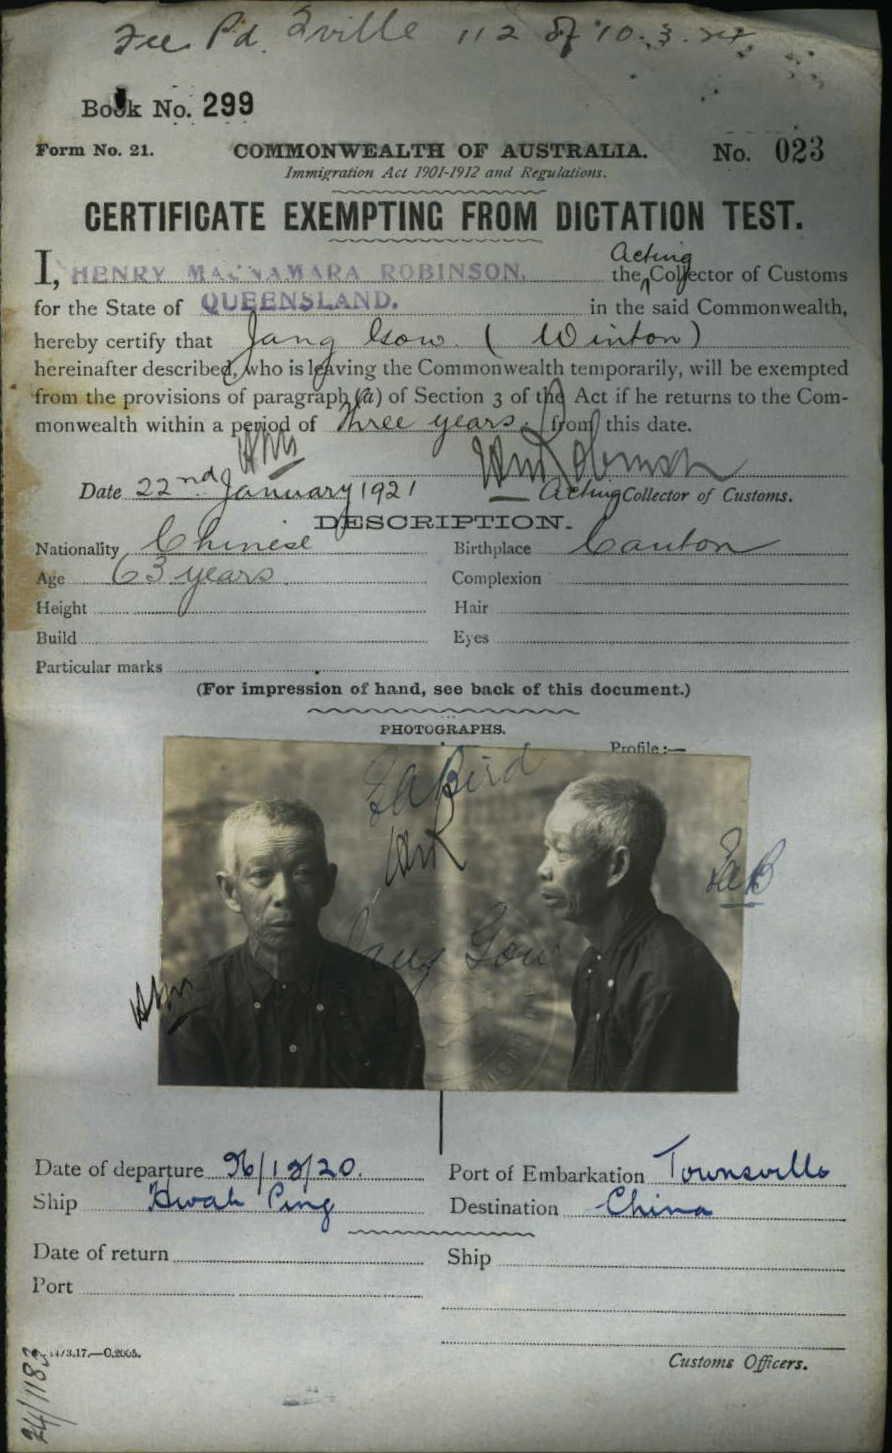 Fee Pd. Tville 112 of 10.3.24
Book No. 299
Form No. 21. COMMONWEALTH OF AUSTRALIA. No. 023
Immigration Act 1901-1912 and Regulations.
CERTIFICATE EXEMPTING FROM DICTATION TEST.
I, HENRY MACNAMARA ROBINSON, the Acting Collector of Customs
for the State of QUEENSLAND. in the said Commonwealth,
hereby certify that Jang Gow. (Winton)
hereinafter described, who is leaving the Commonwealth temporarily, will be exempted
from the provisions of paragraph (a) of Section 3 of the Act if he returns to the Com-
monwealth within a period of three years. from this date.
Date 22nd January 1921 Acting Collector of Customs.
DESCRIPTION.
Nationality Chinese Birthplace Canton
Age 63 years. Complexion
Height Hair
Build Eyes
Particular marks
(For impression of hand, see back of this document.)
PHOTOGRAPHS.
Profile:—
Jang Gow
Date of departure /20. Port of Embarkation Townsville
Ship Hwah Ping Destination China
Date of return Ship
Port
14/3.17.—C.2005.
Customs Officers.
24/1183